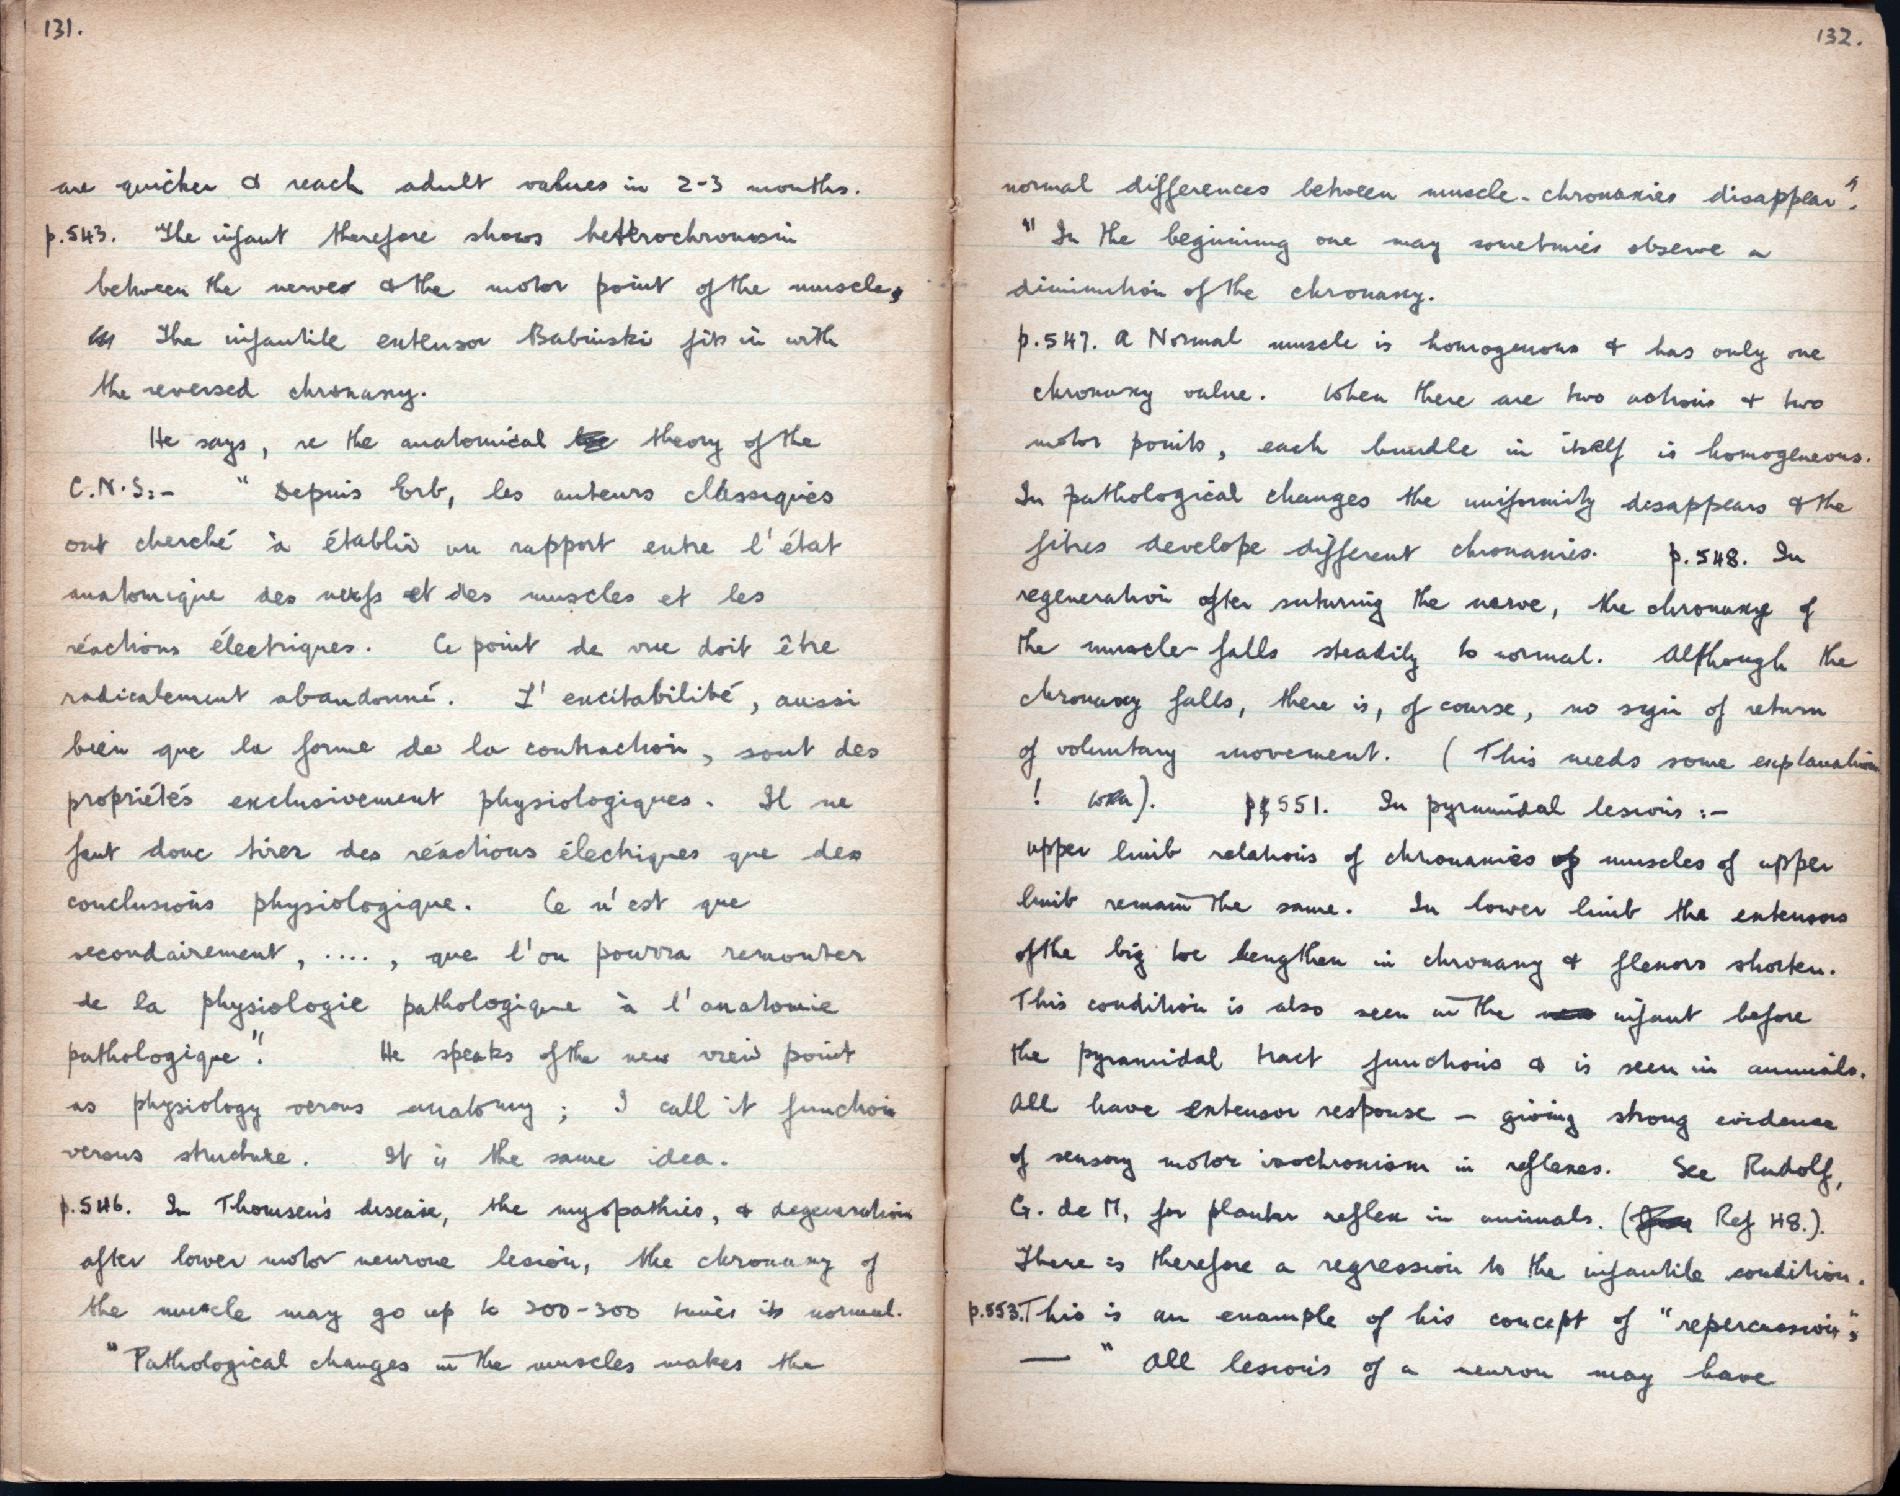 131.
are quicker & reach adult values in 2-3 months.
p.543. The infant therefore shows heterochronism
between the nerves & the motor point of the muscle,
The infantile extensor Babinski fits in with
the reversed chronaxy.
He says, re the anatomical theory of the
C.N.S:- " Depuis Erb, les auteurs classiques
ont cherché à établir un rapport entre l'état
anatomique des nerfs et des muscles et les
réactions électriques. Ce point de vue doit être
radicalement abandonné. L'excitabilité, aussi
bien que la forme de la contraction, sont des
propriétés exclusivement physiologiques. Il ne
faut donc tirer des réactions électriques que des
conclusions physiologique. Ce n'est que
secondairement, ...., que l'on pourra remonter
de la physiologie pathologique à l'anatomie
pathologique". He speaks of the new view point
as physiology versus anatomy; I call it function
versus structure. It is the same idea.
p.546. In Thomsen's disease, the myopathies, & degeneration
after lower motor neurone lesion, the chronaxy of
the muscle may go up to 200-300 times its normal.
"Pathological changes in the muscles makes the
132.
normal differences between muscle-chronaxies disappear".
" In the beginning one may sometimes observe a
diminution of the chronaxy.
p.547. A Normal muscle is homogenous & has only one
chronaxy value. When there are two actions & two
motor points, each bundle in itself is homogeneous.
In pathological changes the uniformity disappears & the
fibres develope different chronaxies. p.548. In
regeneration after suturing the nerve, the chronaxy of
the muscle falls steadily to normal. Although the
chronaxy falls, there is, of course, no sign of return
of voluntary movement. (This needs some explanation
! ). p 551. In pyramidal lesions :-
upper limb relations of chronaxies of muscles of upper
limb remain the same. In lower limb the extensors
of the big toe lengthen in chronaxy & flexors shorten.
This condition is also seen in the infant before
the pyramidal tract functions & is seen in animals.
All have extensor response - giving strong evidence
of sensory motor isochronism in reflexes. See Rudolf,
G. de M, for plantar reflex in animals. ( Ref 48.).
There is therefore a regression to the infantile condition.
p.553. This is an example of his concept of "repercussion":
— " All lesions of a neuron may have